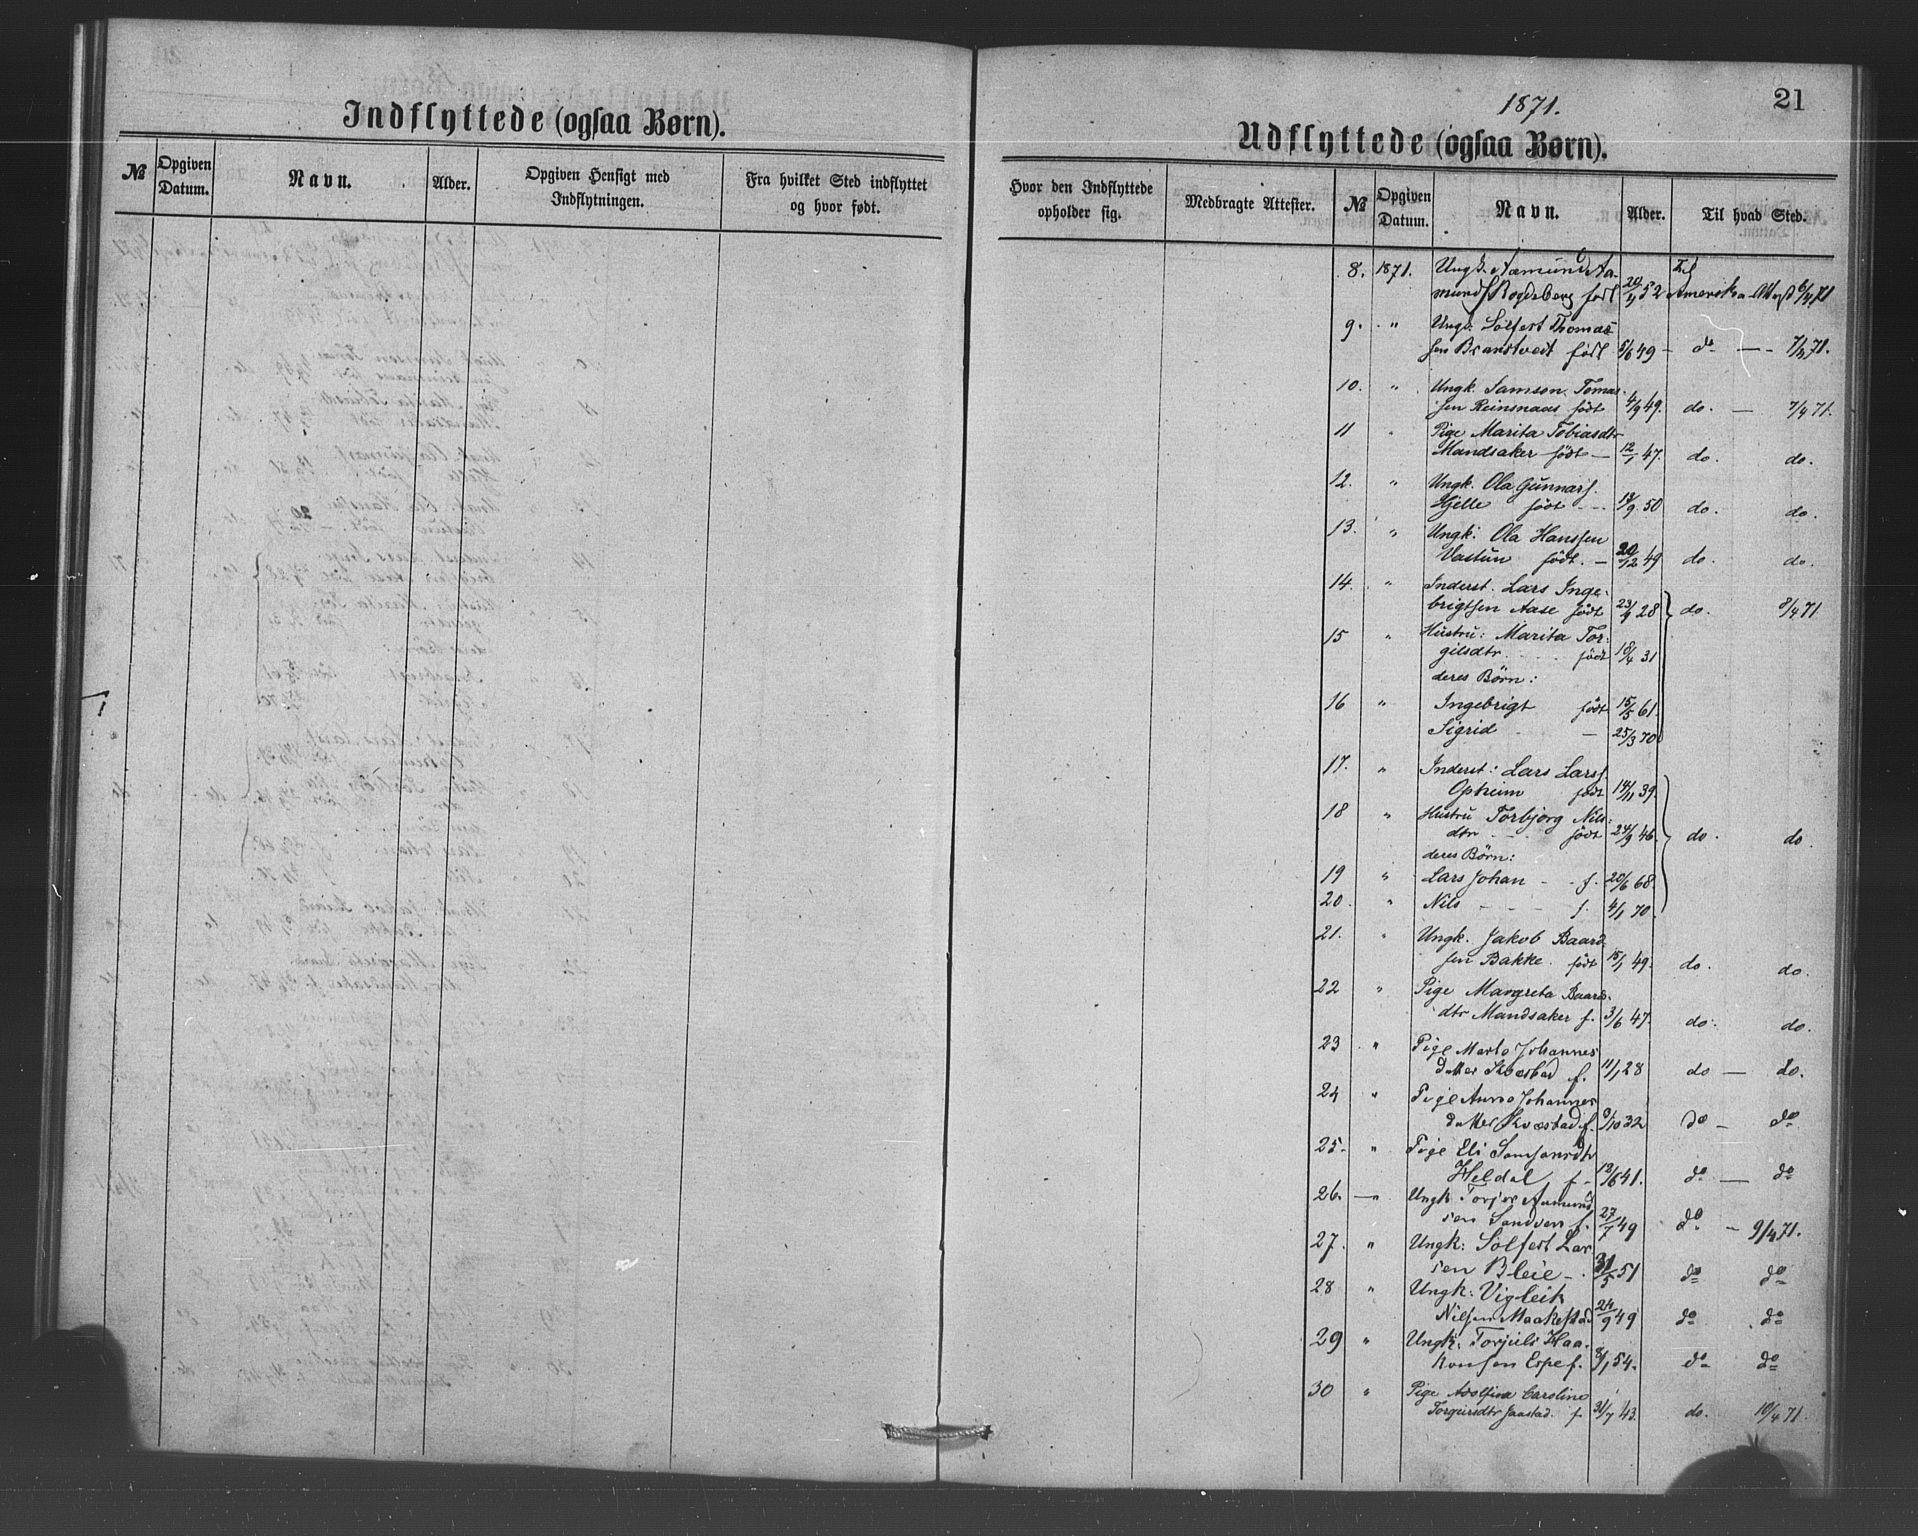 Indflyttede (ogsaa Børn).
№ Opgiven Datum. Navn. Alder. Opgiven Hensigt med Indflytningen. Fra hvilket Sted indflyttet og hvor født.
1871. 21
Udflyttede (ogsaa Børn).
Hvor den Indflyttede opholder sig. Medbragte Attester. № Opgiven Datum. Navn. Alder. Til hvad Sted.
8. 1871. Ungk. Aamund Aa- Til
mundf Rogdeberg født 20/4 52 Amerika Att 6/4 71
9. " Ungk. Solfest Thomas
sen Branstveit født 5/6 49 - do — 7/4 71.
10. " Ungk. Samson Tomas
sen Reinsnaas født 4/9 49. do. — 7/4 71.
11 " Pige Marita Tobiasdtr
Mandsaker født — 12/1 47. do. do.
12. " Ungk. Ola Gunnarf.
Hjelle født - - 18/9 50 do. do.
13. " Ungk: Ola Hanssen
Vastun født. — 20/12 49 do. do.
14. " Inderst. Lars Inge-
brigtsen Aase født 23/9 28 do. 8/4 71.
15 " Hustru: Marita Tor-
gilsdtr. . . . født 18/4 31
deres Børn:
16 " Ingebrigt født 15/5 61.
Sigrid — 25/3 70
17. " Inderst: Lars Larsf.
Opheim født 14/11 39.
18 " Hustru Torbjørg Nils-
dtr - - født 24/9 46. do. do.
deres Børn:
19 " Lars Johan - - f. 20/6 68.
20. " Nils - - - f. 4/1 70.
21. " Ungk. Jakob Baard
sen Bakke. født 15/1 49. do. do.
22 " Pige Margreta Baards-
dtr Mandsaker f. 3/6 47. do. do.
23 " Pige Marta Johannes
datter Kvæstad f. 11/1 28 do — do.
24 " Pige Anna Johannes
datter Kvæstad f. 9/10 32 do — do
25. " Pige Eli Samsonsdtr
Heldal f. 12/6 41. do — do
26. — " Ungk Torjer Aamund
sen Sandven f. 27/7 49 do - 9/4 71.
27. " Ungk: Solfest Lar
sen Bleie - . 31/5 51 do do
28 " Ungk: Vigleik
Nilsen Maakestad 24/9 49 do . do
29 " Ungk: Torjuls Haa-
konsen Espe f. 8/1 54. do do
30 " Pige Adolfina Caroline
Torgeirsdtr Jaastad. f 31/7 43. do. 10/4 71.